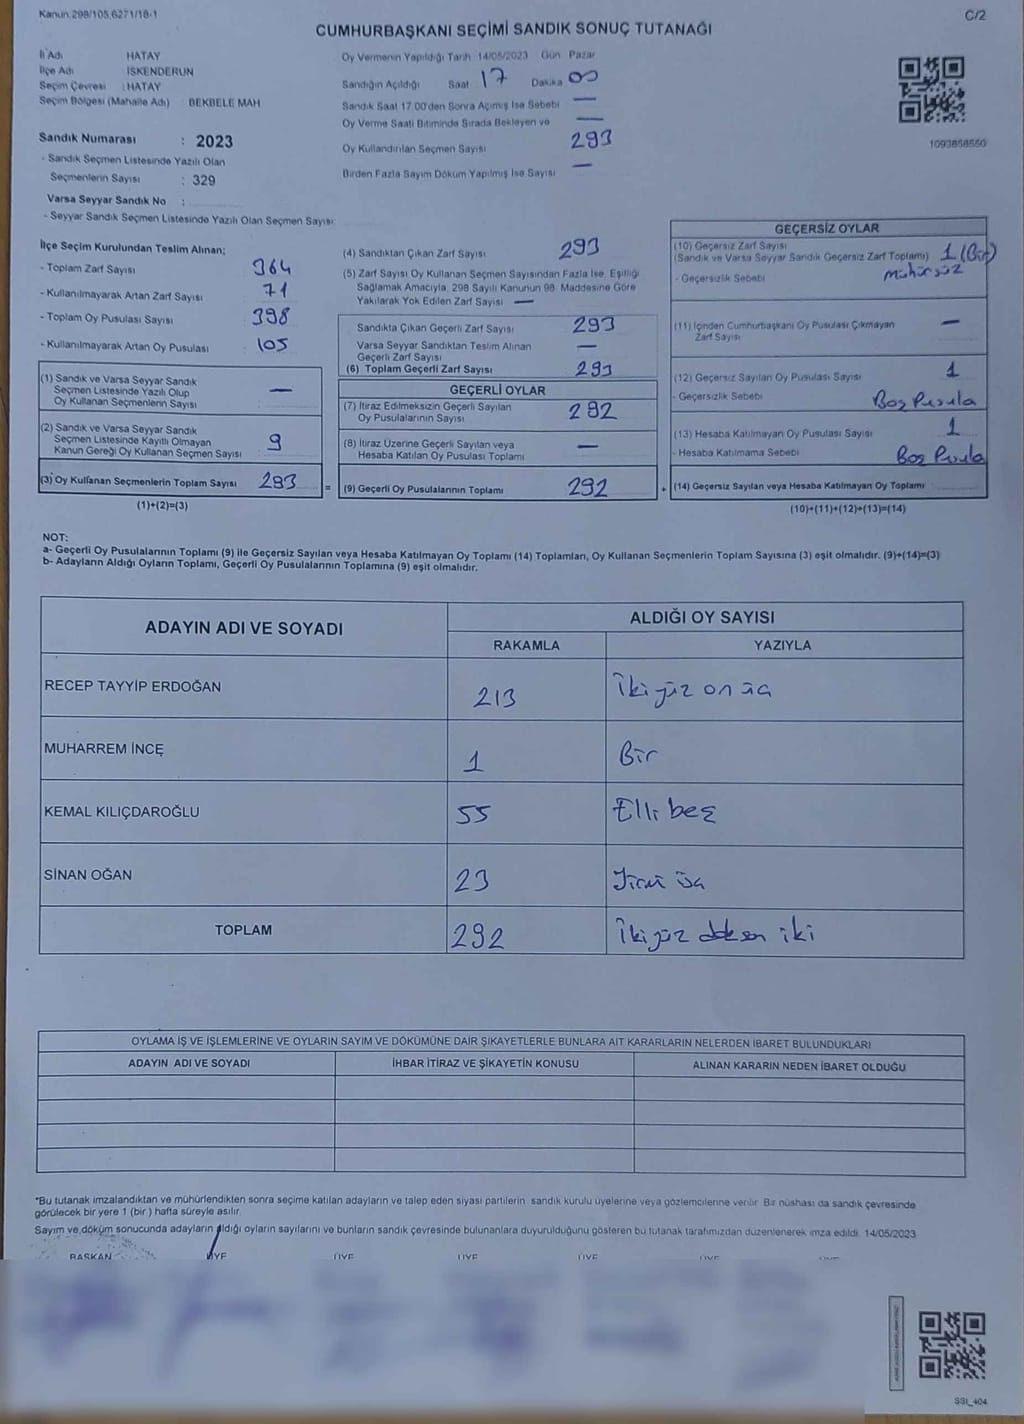 Kanun:298/105,6271/18-1
C/2
CUMHURBAŞKANI SEÇİMİ SANDIK SONUÇ TUTANAĞI
İl Adı HATAY
İlçe Adı İSKENDERUN
Seçim Çevresi : HATAY
Seçim Bölgesi (Mahalle Adı) : BEKBELE MAH
Sandık Numarası : 2023
- Sandık Seçmen Listesinde Yazılı Olan
Seçmenlerin Sayısı : 329
Varsa Seyyar Sandık No :
- Seyyar Sandık Seçmen Listesinde Yazılı Olan Seçmen Sayısı:
Oy Vermenin Yapıldığı Tarih :14/05/2023 Gün Pazar
Sandığın Açıldığı Saat 17 Dakika 00
Sandık Saat 17.00'den Sonra Açımış İse Sebebi —
Oy Verme Saati Bitiminde Sırada Bekleyen ve —
Oy Kullandırılan Seçmen Sayısı 293
Birden Fazla Sayım Döküm Yapılmış İse Sayısı —
1093858550
İlçe Seçim Kurulundan Teslim Alınan;
- Toplam Zarf Sayısı 364
- Kullanılmayarak Artan Zarf Sayısı : 71
- Toplam Oy Pusulası Sayısı : 398
- Kullanılmayarak Artan Oy Pusulası : 105
(1) Sandık ve Varsa Seyyar Sandık
Seçmen Listesinde Yazılı Olup
Oy Kullanan Seçmenlerin Sayısı : —
(2) Sandık ve Varsa Seyyar Sandık
Seçmen Listesinde Kayıtlı Olmayan
Kanun Gereği Oy Kullanan Seçmen Sayısı : 9
(3) Oy Kullanan Seçmenlerin Toplam Sayısı 293
(1)+(2)=(3)
(4) Sandıktan Çıkan Zarf Sayısı 293
(5) Zarf Sayısı Oy Kullanan Seçmen Sayısından Fazla İse, Eşitliği
Sağlamak Amacıyla, 298 Sayılı Kanunun 98. Maddesine Göre
Yakılarak Yok Edilen Zarf Sayısı —
Sandıkta Çıkan Geçerli Zarf Sayısı 293
Varsa Seyyar Sandıktan Teslim Alınan
Geçerli Zarf Sayısı —
(6) Toplam Geçerli Zarf Sayısı 293
GEÇERLİ OYLAR
(7) İtiraz Edilmeksizin Geçerli Sayılan
Oy Pusulalarının Sayısı 292
(8) İtiraz Üzerine Geçerli Sayılan veya
Hesaba Katılan Oy Pusulası Toplamı —
= (9) Geçerli Oy Pusulalarının Toplamı 292
GEÇERSİZ OYLAR
(10) Geçersiz Zarf Sayısı
(Sandık ve Varsa Seyyar Sandık Geçersiz Zarf Toplamı) 1 (Bir)
- Geçersizlik Sebebi mühürsüz
(11) İçinden Cumhurbaşkanı Oy Pusulası Çıkmayan
Zarf Sayısı —
(12) Geçersiz Sayılan Oy Pusulası Sayısı 1
- Geçersizlik Sebebi Boş Pusula
(13) Hesaba Katılmayan Oy Pusulası Sayısı 1
- Hesaba Katılmama Sebebi Boş Pusula
+ (14) Geçersiz Sayılan veya Hesaba Katılmayan Oy Toplamı
(10)+(11)+(12)+(13)=(14)
NOT:
a- Geçerli Oy Pusulalarının Toplamı (9) ile Geçersiz Sayılan veya Hesaba Katılmayan Oy Toplamı (14) Toplamları, Oy Kullanan Seçmenlerin Toplam Sayısına (3) eşit olmalıdır. (9)+(14)=(3)
b- Adayların Aldığı Oyların Toplamı, Geçerli Oy Pusulalarının Toplamına (9) eşit olmalıdır.
ADAYIN ADI VE SOYADI
ALDIĞI OY SAYISI
RAKAMLA YAZIYLA
RECEP TAYYİP ERDOĞAN 213 İkiyüz on üç
MUHARREM İNCE 1 Bir
KEMAL KILIÇDAROĞLU 55 Elli beş
SİNAN OĞAN 23 Yirmi üç
TOPLAM 292 İkiyüz doksan iki
OYLAMA İŞ VE İŞLEMLERİNE VE OYLARIN SAYIM VE DÖKÜMÜNE DAİR ŞİKAYETLERLE BUNLARA AİT KARARLARIN NELERDEN İBARET BULUNDUKLARI
ADAYIN ADI VE SOYADI İHBAR İTİRAZ VE ŞİKAYETİN KONUSU ALINAN KARARIN NEDEN İBARET OLDUĞU
*Bu tutanak imzalandıktan ve mühürlendikten sonra seçime katılan adayların ve talep eden siyasi partilerin sandık kurulu üyelerine veya gözlemcilerine verilir. Bir nüshası da sandık çevresinde
görülecek bir yere 1 (bir ) hafta süreyle asılır.
Sayım ve döküm sonucunda adayların aldığı oyların sayılarını ve bunların sandık çevresinde bulunanlara duyurulduğunu gösteren bu tutanak tarafımızdan düzenlenerek imza edildi. 14/05/2023
BAŞKAN ÜYE ÜYE ÜYE ÜYE ÜYE ÜYE
SSI_404